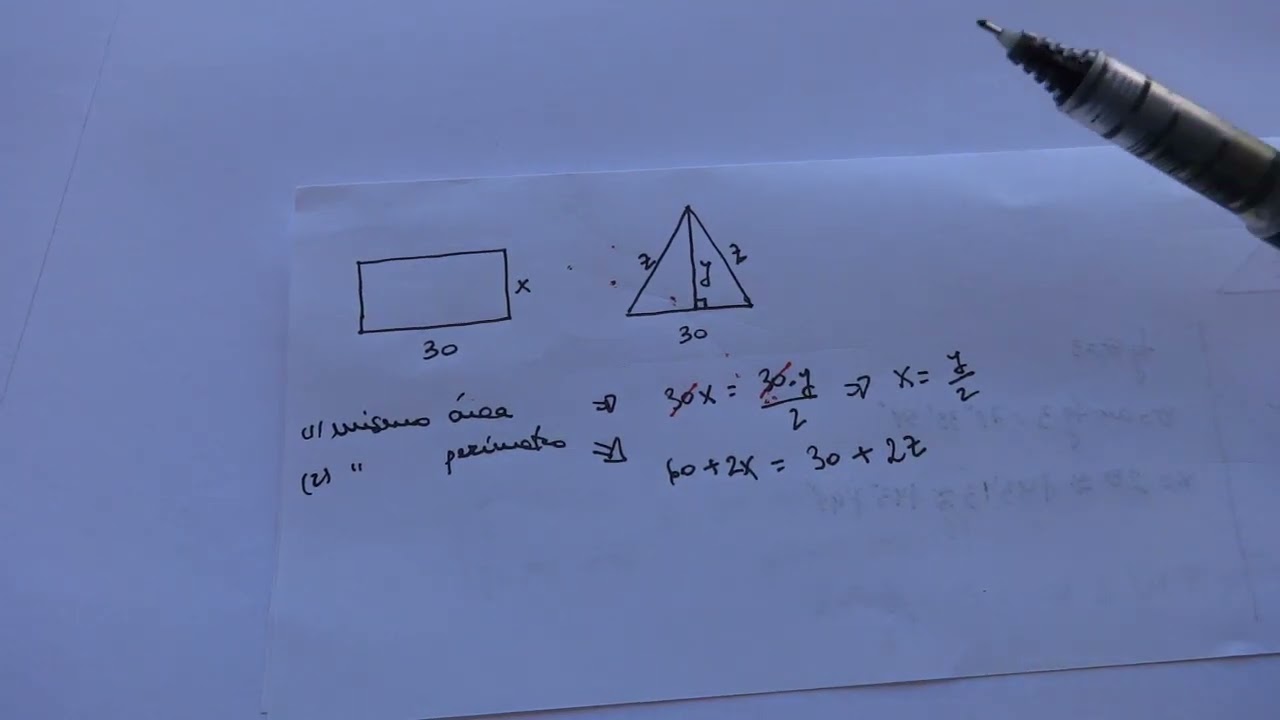 x
30
z
z
y
30
(1) mismo área ⇒ 30x = 30.y/2 ⇒ x = y/2
(2) " perímetro ⇒ 60 + 2x = 30 + 2z